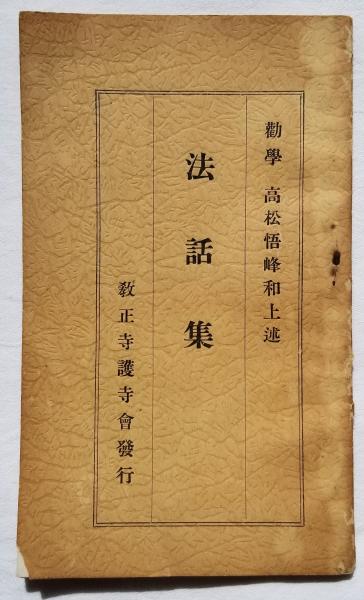 勸學 高松悟峰和上述
法話集
教正寺護寺會發行